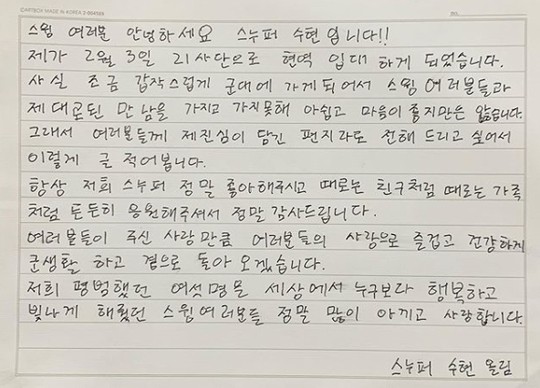 CARTBOX MADE IN KOREA
스윙 여러분 안녕하세요 스누퍼 수현입니다!!
제가 2월 3일 21사단으로 현역 입대 하게 되었습니다.
사실 조금 갑작스럽게 군대에 가게되어서 스윙 여러분들과
제대로된 만남을 가지고 가지못해 아쉽고 마음이 좋지만은 않습니다.
그래서 여러분들께 제진심이 담긴 편지라도 전해 드리고 싶어서
이렇게 글 적어봅니다.
항상 저희 스누퍼 정말 좋아해주시고 때로는 친구처럼 때로는 가족
처럼 든든히 응원해주셔서 정말 감사드립니다.
여러분들이 주신 사랑만큼 여러분들의 사랑으로 즐겁고 건강하게
군생활 하고 겸으로 돌아 오겠습니다.
저희 평범했던 여섯명을 세상에서 누구보다 행복하고
빛나게 해줬던 스윙여러분들 정말 많이 아끼고 사랑합니다.
스누퍼 수현 올림